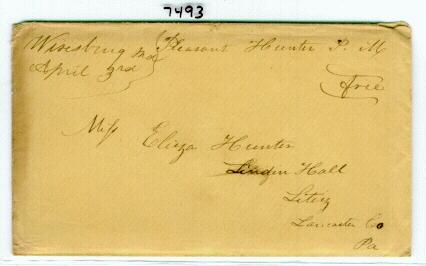 7493
Wiresburg Mo Pleasant Hunter P. M
April 3rd
Free
Miss Eliza Hunter
Linden Hall
Litiz
Lancaster Co
Pa